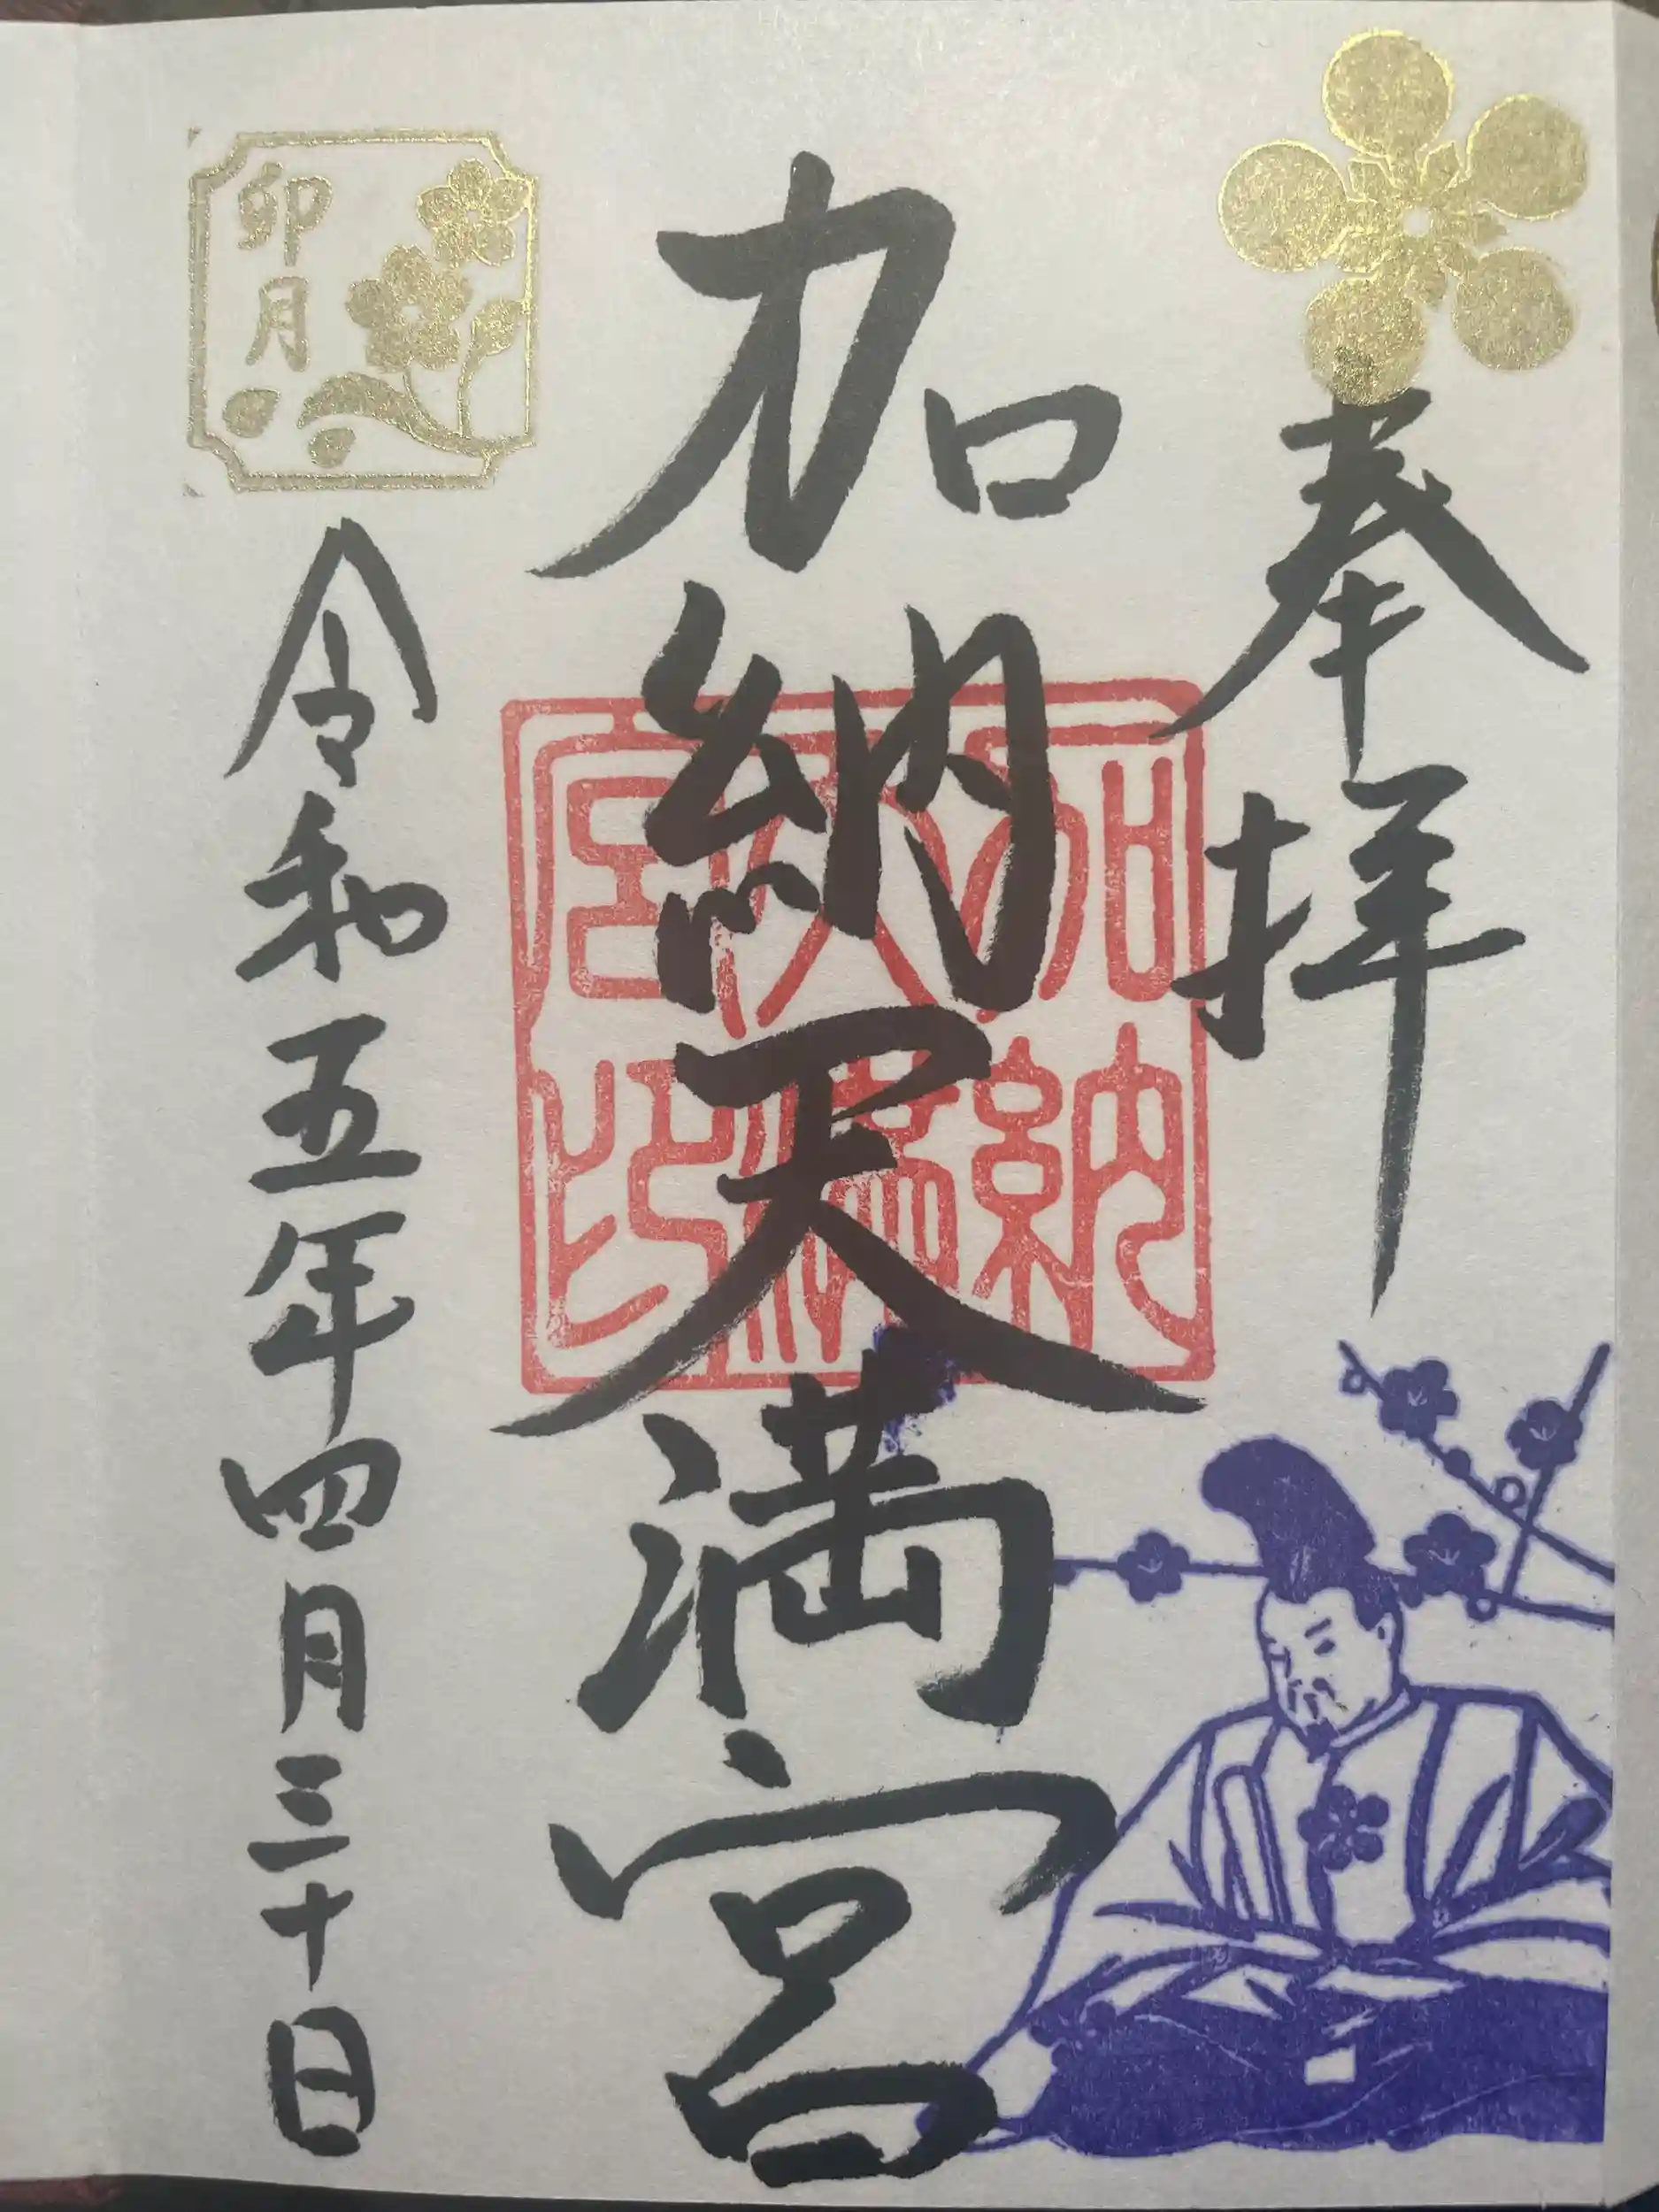 奉拝
加納天満宮
加納
天満
宮印
卯月
令和五年四月三十日